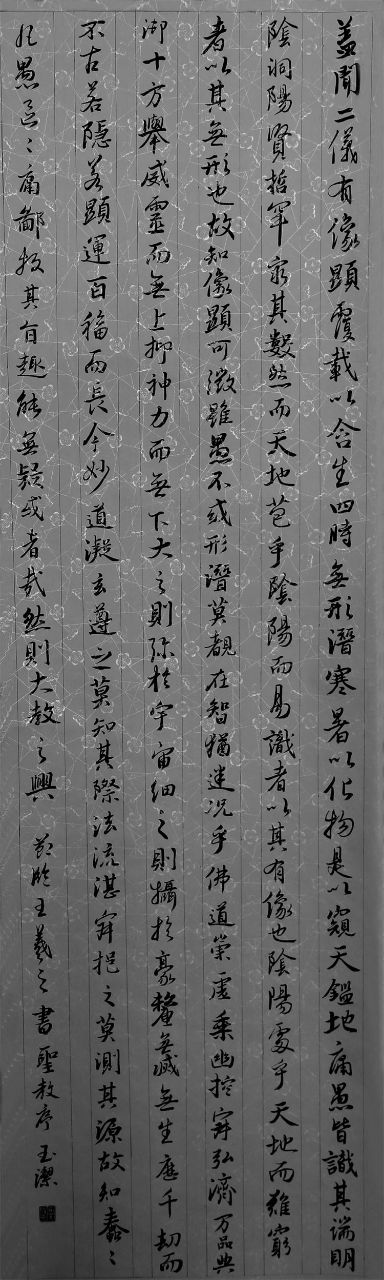 蓋聞二儀有像顯覆載以含生四時無形潛寒暑以化物是以窺天鑑地庸愚皆識其端明
陰洞陽賢哲罕窮其數然而天地苞乎陰陽而易識者以其有像也陰陽處乎天地而難窮
者以其無形也故知像顯可徵雖愚不或形潛莫覩在智猶迷況乎佛道崇虛乘幽控寂弘濟万品典
御十方舉威靈而無上抑神力而無下大之則弥於宇宙細之則攝於豪釐無滅無生歷千劫而
不古若隱若顯運百福而長今妙道凝玄遵之莫知其際法流湛寂挹之莫測其源故知蠢〻
凡愚區〻庸鄙投其旨趣能無疑或者哉然則大教之興 節臨王羲之書聖教序 玉潔